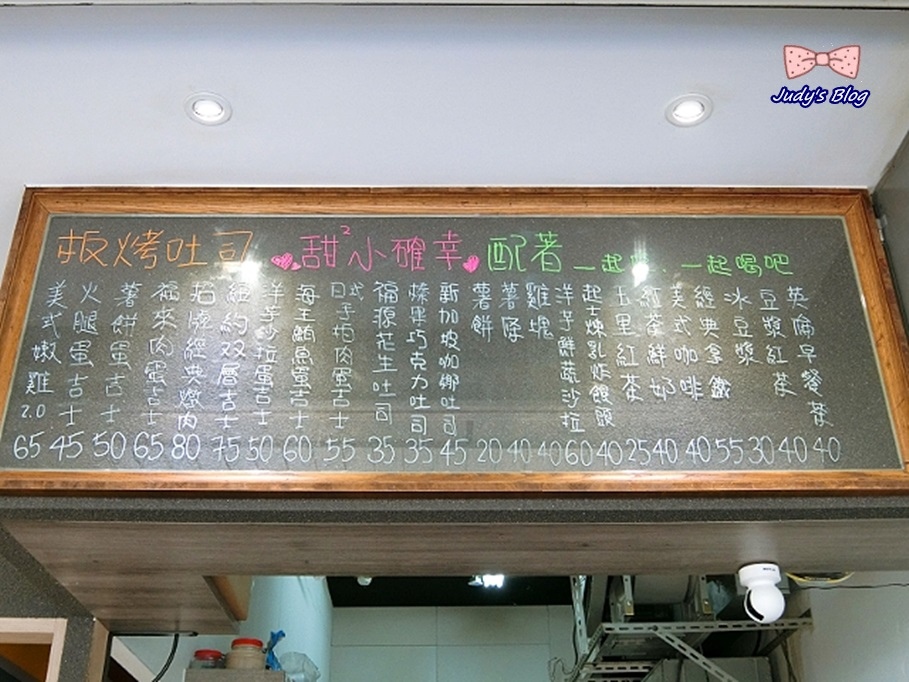 Judy's Blog
板烤吐司
甜²小確幸
配著
一起喝吧
美式嫩雞2.0 65
火腿蛋吉士 45
薯餅蛋吉士 50
福來肉蛋吉士 65
招牌經典燉肉 80
紐約双層吉士 75
洋芋沙拉蛋吉士 50
海王鮪魚蛋吉士 60
日式手拍肉蛋吉士 55
福源花生吐司 35
榛果巧克力吐司 35
新加坡咖椰吐司 45
薯餅 20
薯條 40
雞塊 40
洋芋鮮蔬沙拉 60
起士煉乳炸饅頭 40
古里紅茶 25
紅茶鮮奶 40
美式咖啡 40
經典拿鐵 55
冰豆漿 30
豆漿紅茶 40
英倫早餐茶 40